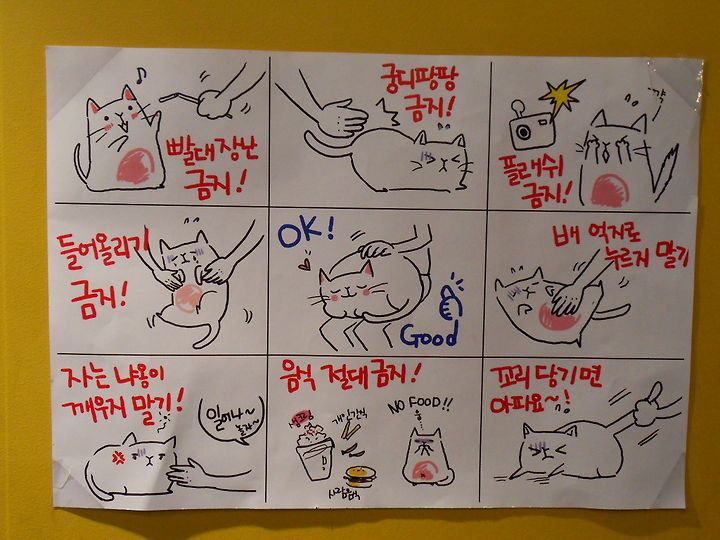 빨대 장난
금지!
궁디팡팡
금지!
깍
플래쉬
금지!
들어올리기
금지!
OK!
Good
배 억지로
누르지 말기
자는 냐옹이
깨우지 말기!
일어나~
놀자~
음식 절대 금지!
생크림
개인간식
사람음식
NO FOOD!!
꼬리 당기면
아파요~!